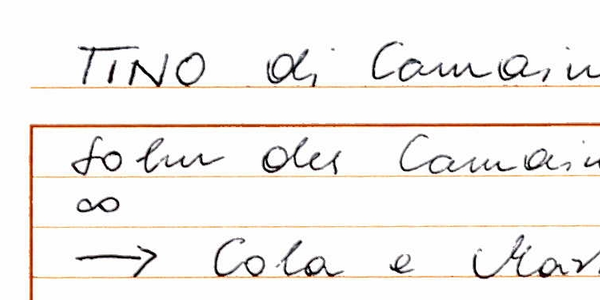 TINO di Camain
Sohn des Camain
∞
→ Cola e Mar